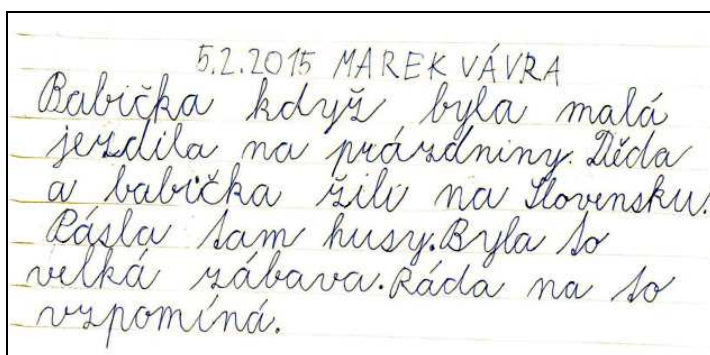 5.2.2015 MAREK VÁVRA
Babička když byla malá
jezdila na prázdniny. Děda
a babička žili na Slovensku.
Pásla tam husy. Byla to
velká zábava. Ráda na to
vzpomíná.